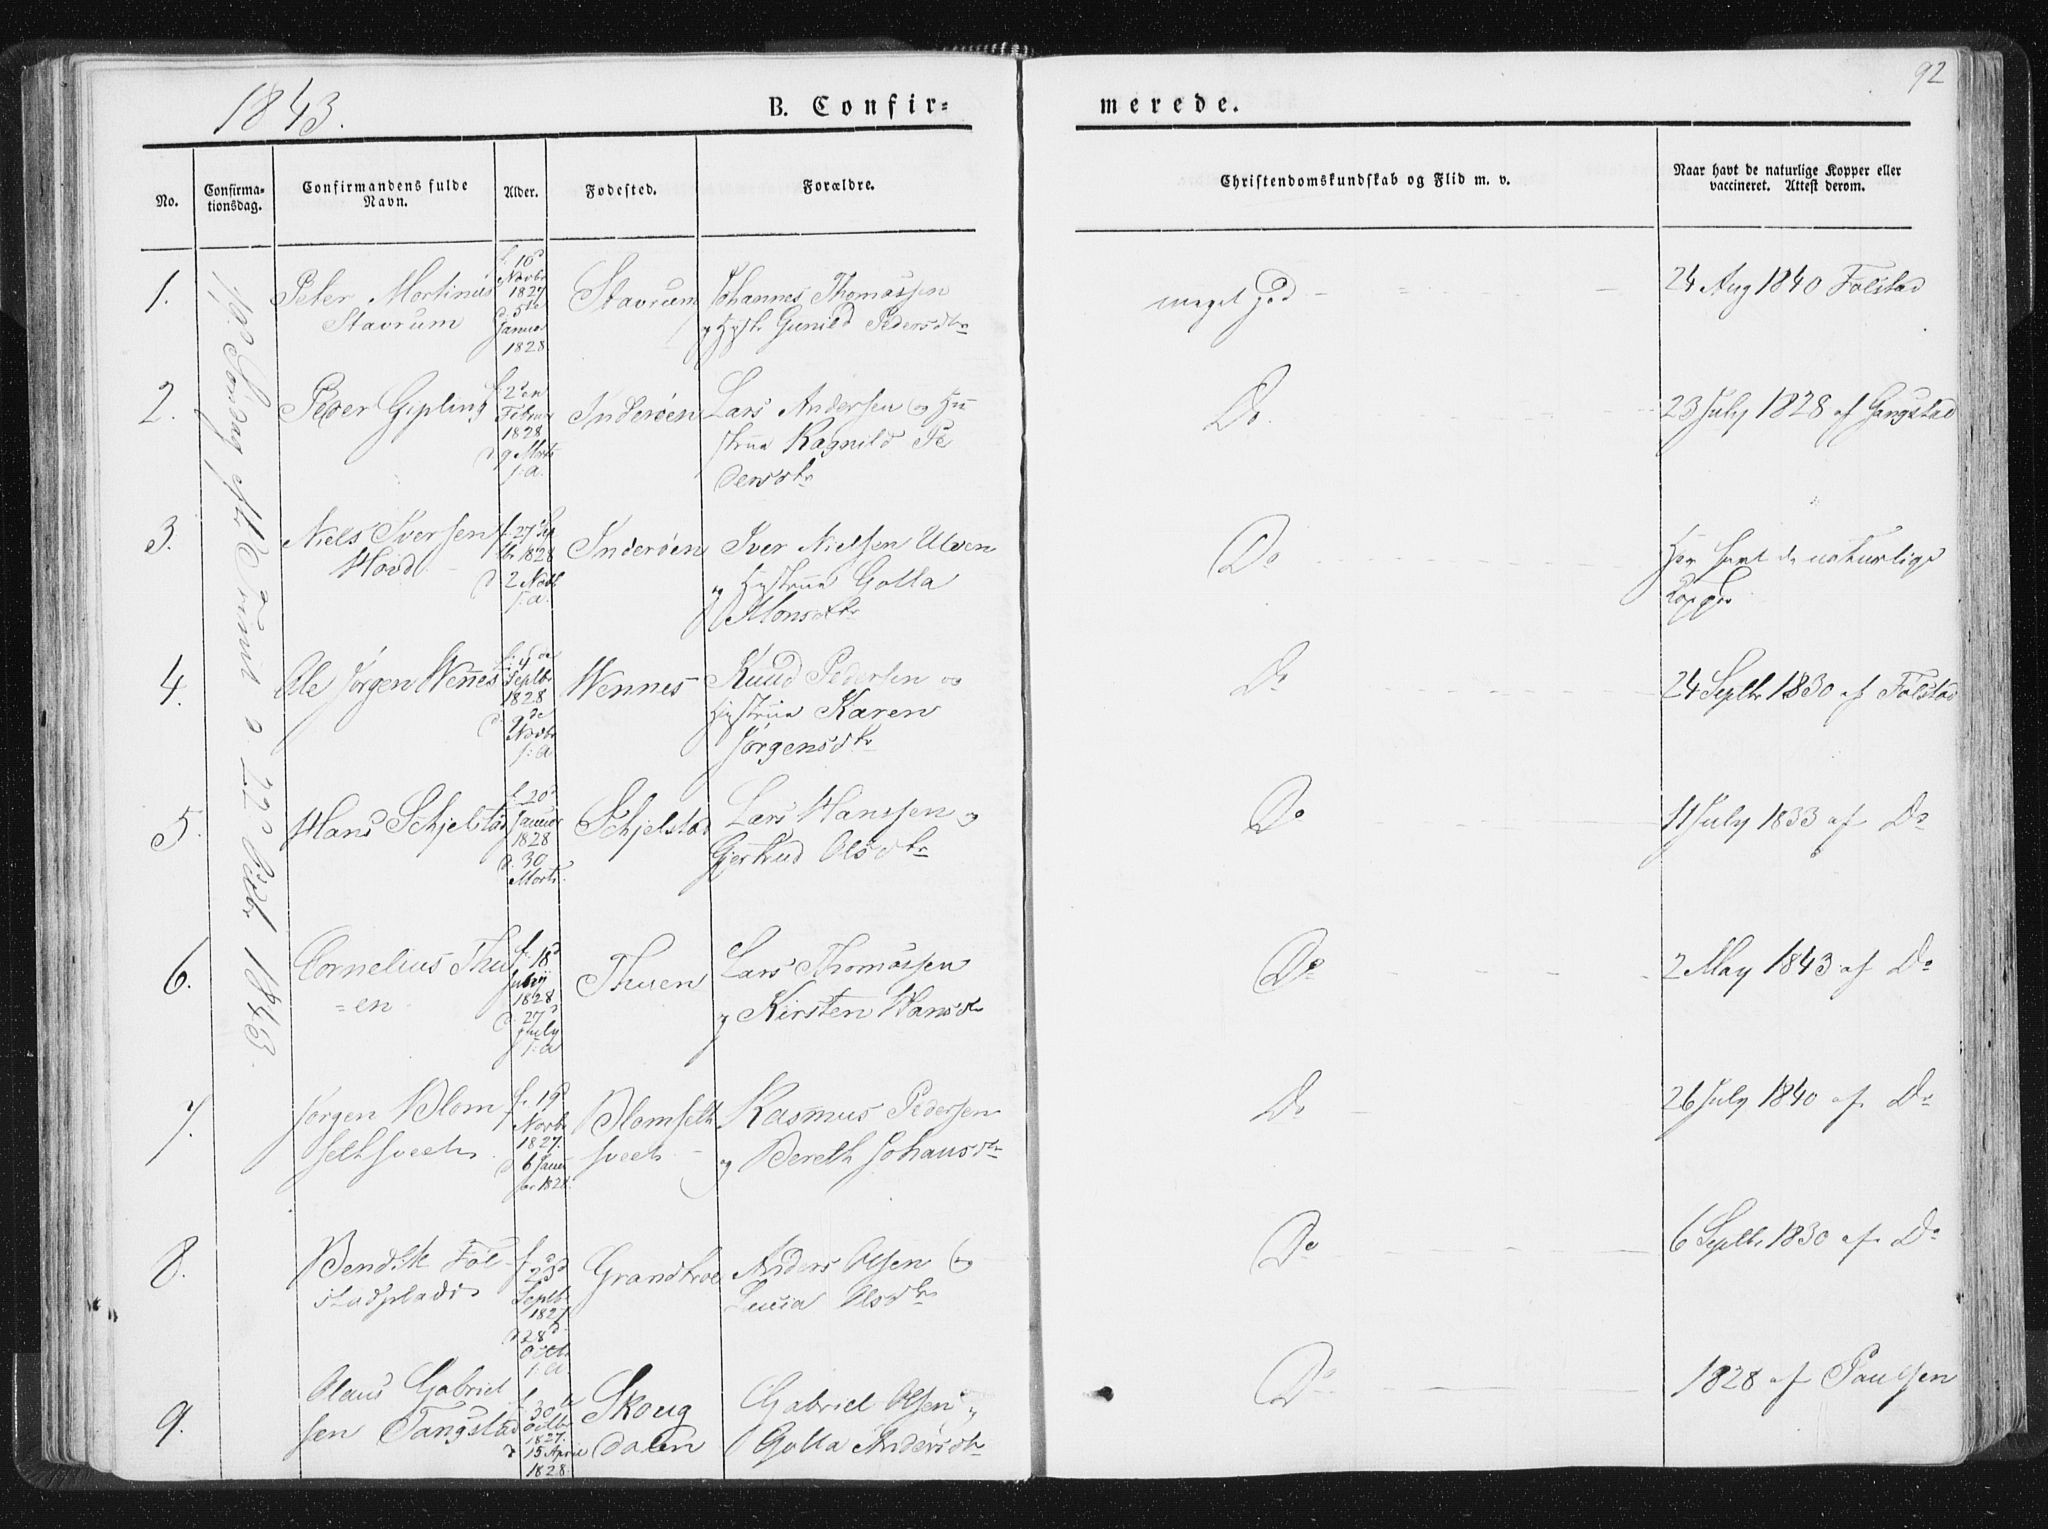 92
1843.
B. Confir-
merede.
No.
Confirma-
tionsdag.
Confirmandens fulde
Navn.
Alder.
Fødested.
Forældre.
Christendomskundskab og Flid m. v.
Naar havt de naturlige Kopper eller
vaccineret. Attest derom.
19. Søndag eft. Trinit. d. 22d Octbr 1843.
1.
Peter Mortinus
Stavrum
f. 16d
Novbr
1827
d. 5te
Januar
1828
Stavrum
Johannes Thomassen
og Hustr Gunild Pedersdtr
meget god
24 Aug 1840 Følstad
2.
Peder Gipling
f. 2den
Februar
1828
d. 9 Marts
s: a.
Inderøen
Lars Andersen og Hu
strue Ragnild Pe
dersdtr
Do
23 July 1828 af Gangstad
3.
Niels Iversen
Hovd
f. 27 Sep
tbr 1828
d. 2 Novbr
s: a.
Inderøen
Iver Nielsen Ulven
og Hustrue Golla
Monsdtr
Do
Har havt de naturlige
Kopper
4.
Ole Jørgen Wennes
f. 4de
Septbr
1828
d. 9de
Novbr
s: a
Wennes
Knud Pedersen og
Hustrue Karen
Jørgensdtr
Do
24 Septbr 1830 af Følstad
5.
Hans Schjelstad
f. 20d
Januar
1828
d. 30
Marts
Schjelstad
Lars Hanssen og
Gjertrud Olsdtr
Do
11 July 1833 af Do
6.
Cornelius Thu
=en
f. 18d
July
1828
d. 27d
July
s: a
Thuen
Lars Thomassen
og Kirsten Hansdtr
Do
2 May 1843 af Do
7.
Jørgen Blom
f. 19d
Novbr
1827.
d. 6 Janu
ar 1828
Blomfelt
Rasmus Pedersen
og Bereth Johansdtr
Do
26 July 1840 af Do
8.
Bendik Føl
stadplads
f. 23d
Septbr
1827
d. 28d
Octbr
s: a
Grandtroe
Anders Olsen og
Lucia Olsdtr
Do
6 Septbr 1830 af Do
9.
Olaus Gabriel
sen Tangstad
f. 30
Octbr
1827.
d. 15 April
1828
Skoug
dalen
Gabriel Olsen og
Golla Andersdtr
Do
1828 af Paulsen